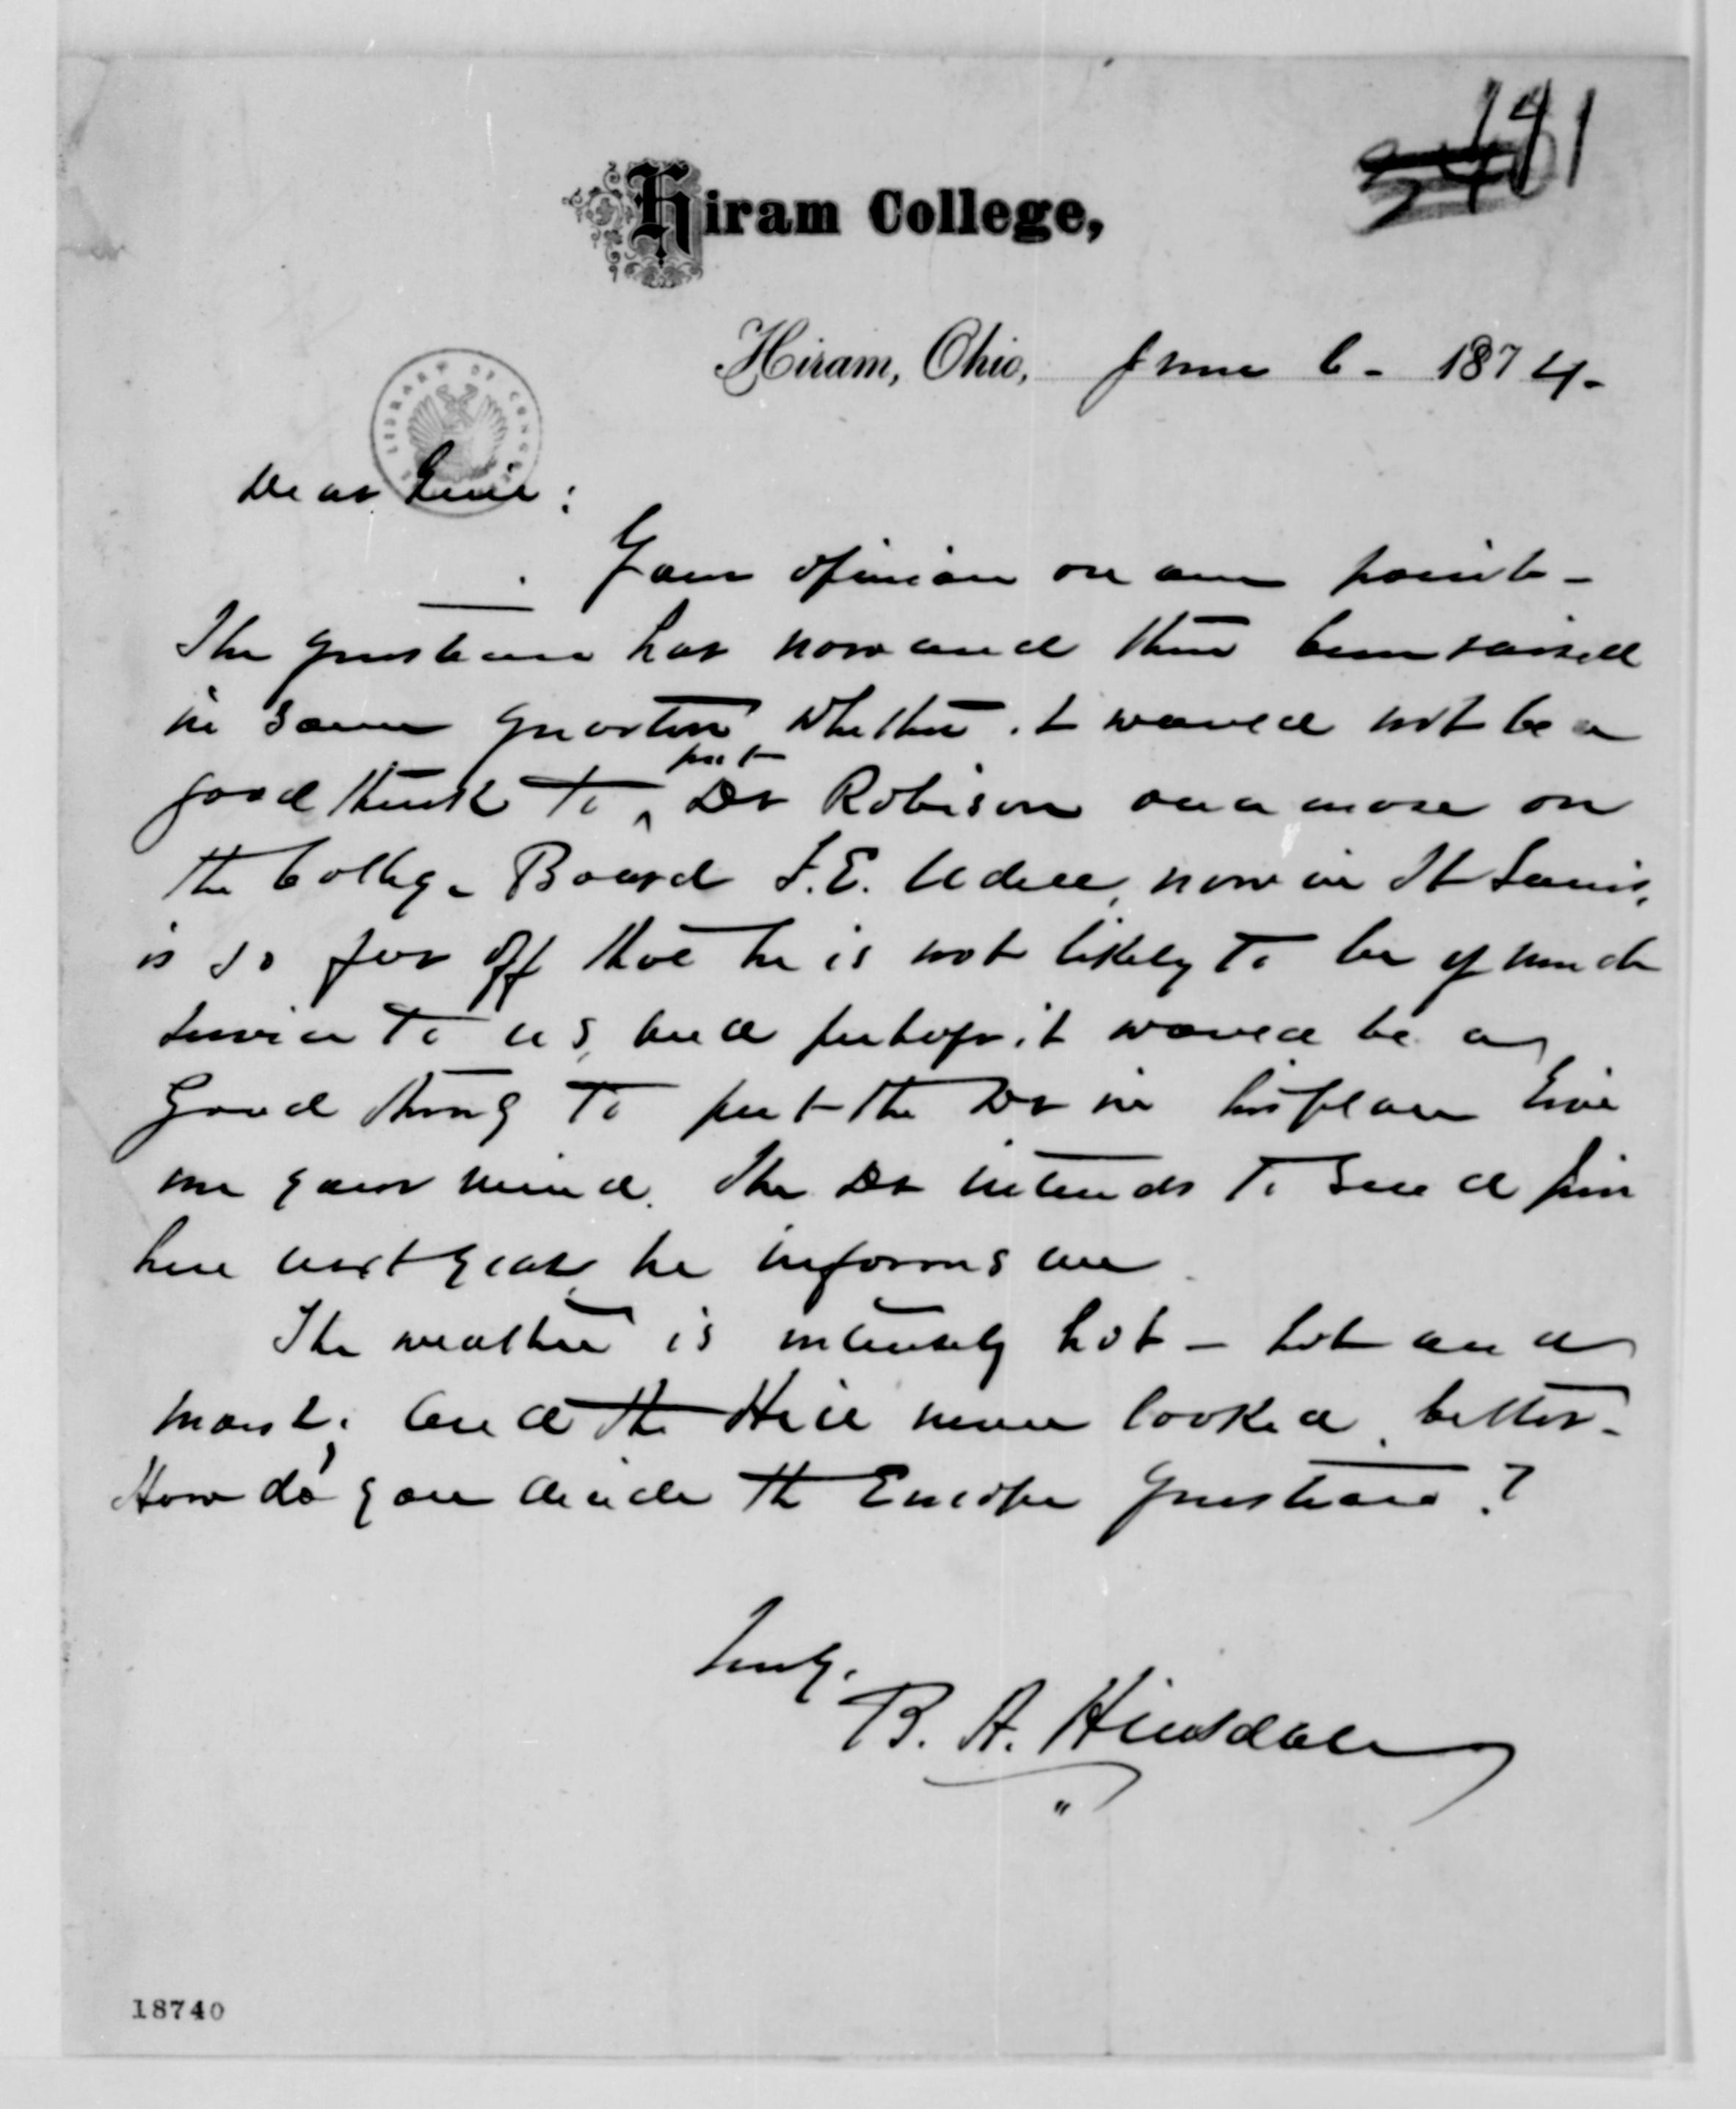 181
Hiram College,
Hiram, Ohio, June 6 - 1874.
LIBRARY OF CONGRESS
Dear Genl:
Your opinion on one point -
The question has now and then been raised
in some quarters whether it would not be a
good think to ^put Dr Robison once more on
the College Board F.E. Udell, now in St Louis,
is so far off that he is not likely to be of much
service to us, and perhaps it would be a
good thing to put the Dr in his place Give
me your mind. The Dr intends to send Jim
here next year, he informs me.
The weather is intensely hot - hot and
moist; and the Hill never looked better -
How do you decide the Europe question?
Truly,
B. A. Hinsdale
18740